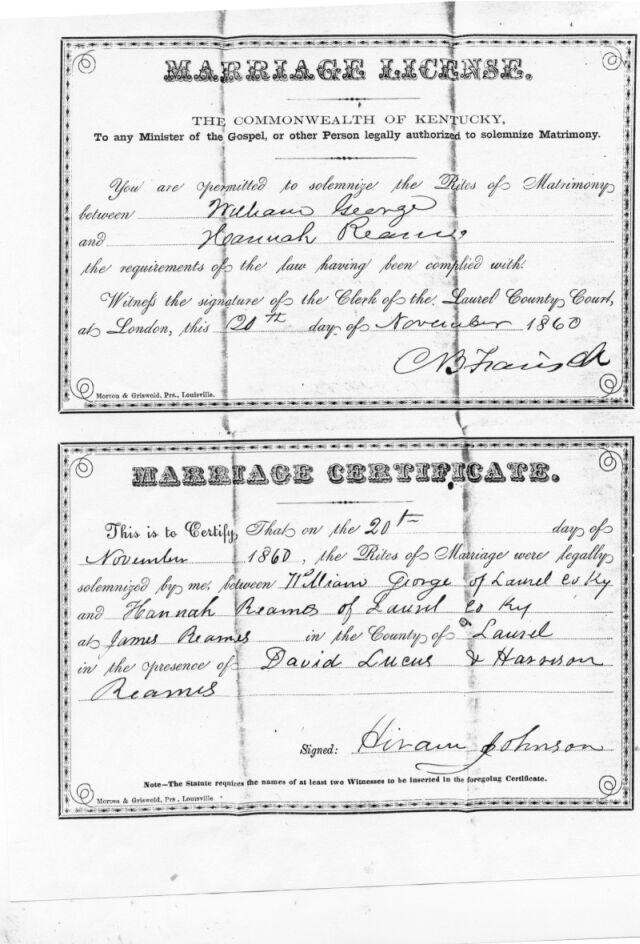 MARRIAGE LICENSE.
THE COMMONWEALTH OF KENTUCKY,
To any Minister of the Gospel, or other Person legally authorized to solemnize Matrimony.
You are permitted to solemnize the Rites of Matrimony
between William George
and Hannah Reams
the requirements of the law having been complied with.
Witness the signature of the Clerk of the Laurel County Court,
at London, this 20th day of November 1860
Morton & Griswold, Prs., Louisville.
MARRIAGE CERTIFICATE.
This is to Certify, That on the 20th day of
November 1860, the Rites of Marriage were legally
solemnized by me, between William George of Laurel Co Ky
and Hannah Reames of Laurel Co Ky
at James Reames in the County of Laurel
in the presence of David Lucus & Harvison
Reames
Signed: Hiram Johnson
Note—The Statute requires the names of at least two Witnesses to be inserted in the foregoing Certificate.
Morton & Griswold, Prs., Louisville